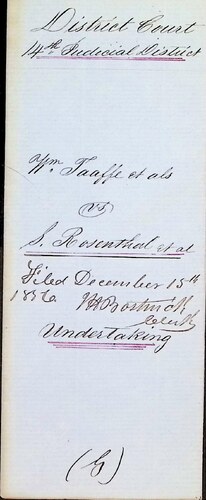 District Court
14th Judicial District
Wm. Taaffe et als
vs
S. Rosenthal et al
Filed December 15th
1856 Bostwick
Clerk
Undertaking
(G)